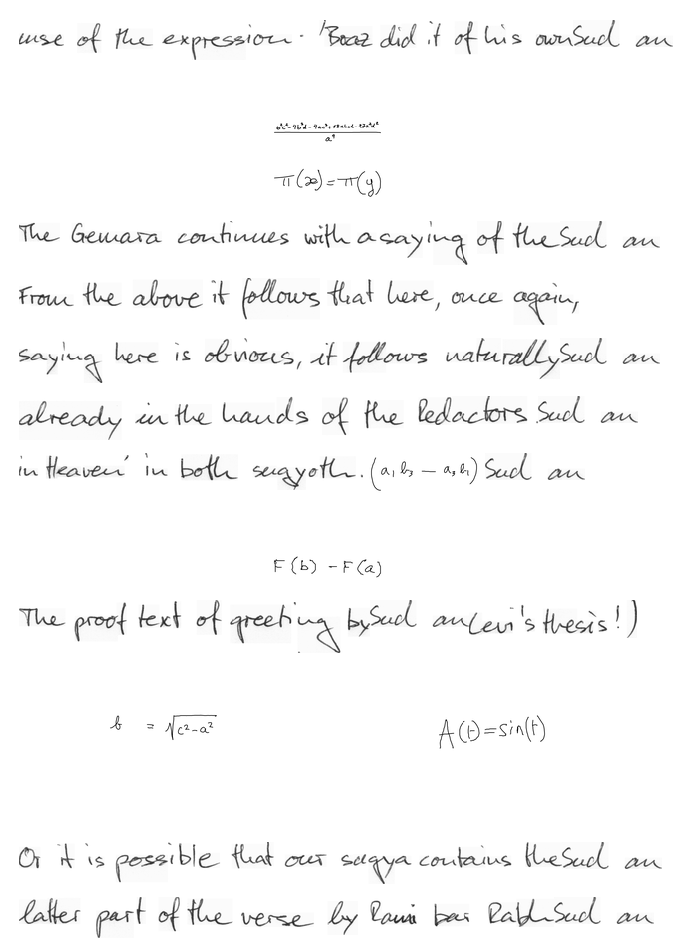 use of the expression. 'Boaz did it of his own Sud an
π(x)=π(y)
The Gemara continues with a saying of the Sud an
From the above it follows that here, once again,
saying here is obvious, it follows naturally Sud an
already in the hands of the Redactors Sud an
in Heaven' in both sugyoth. (a₁b₃ − a₃b₁) Sud an
F(b) − F(a)
The proof text of greeting by Sud an Levi's thesis!)
b = √(c²−a²) A(t)=sin(t)
Or it is possible that our sugya contains the Sud an
latter part of the verse by Rami bar Rabh Sud an